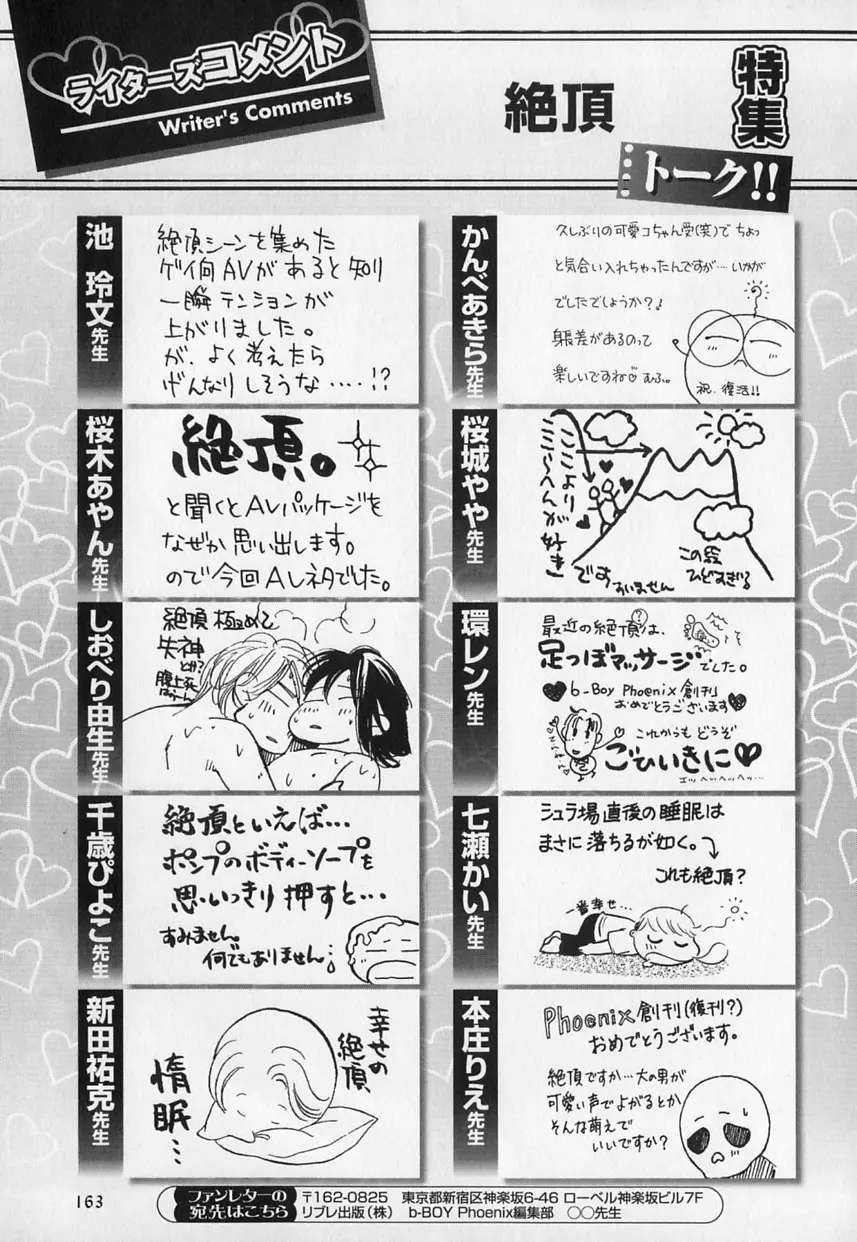 ライターズコメント
Writer's Comments
特集
絶頂
トーク!!
かんべあきら先生
久しぶりの可愛コちゃん受(笑)で ちょっ
と気合い入れちゃったんですが…いかが
でしたでしょうか?♪
身長差があるのって
楽しいですね♡ むふ。
祝・復活!!
池 玲文先生
絶頂シーンを集めた
ゲイ向AVがあると知り
一瞬テンションが
上がりました。
が、よく考えたら
げんなりしそうな‥‥!?
桜城やや先生
ここより
ここらへんが
好き
です
すいません
この絵
ひどすぎる
桜木あやん先生
絶頂。
と聞くとAVパッケージを
なぜか思い出します。
ので今回AVネタでした。
環レン先生
最近の絶頂は、
?
痛い
足つぼマッサージでした。
b-Boy Phoenix 創刊
おめでとうございます
これからも どうぞ
ごひいきに♥
エッヘヘッヘヘッヘ…
しおべり由生先生
絶頂 極めて
失神
とか?
腹上死
七瀬かい先生
シュラ場直後の睡眠は
まさに落ちるが如く。
これも絶頂?
一番幸せ…
千歳ぴよこ先生
絶頂といえば…
ポンプのボディーソープを
思いっきり押すと…
すみません。
何でもありません…
本庄りえ先生
Phoenix創刊(復刊?)
おめでとうございます。
絶頂ですか…大の男が
可愛い声でよがるとか
そんな萌えで
いいですか?
新田祐克先生
幸せの
絶頂
惰眠…
163
ファンレターの
宛先はこちら
〒162-0825 東京都新宿区神楽坂6-46 ローベル神楽坂ビル7F
リブレ出版(株) b-BOY Phoenix編集部 ○○先生